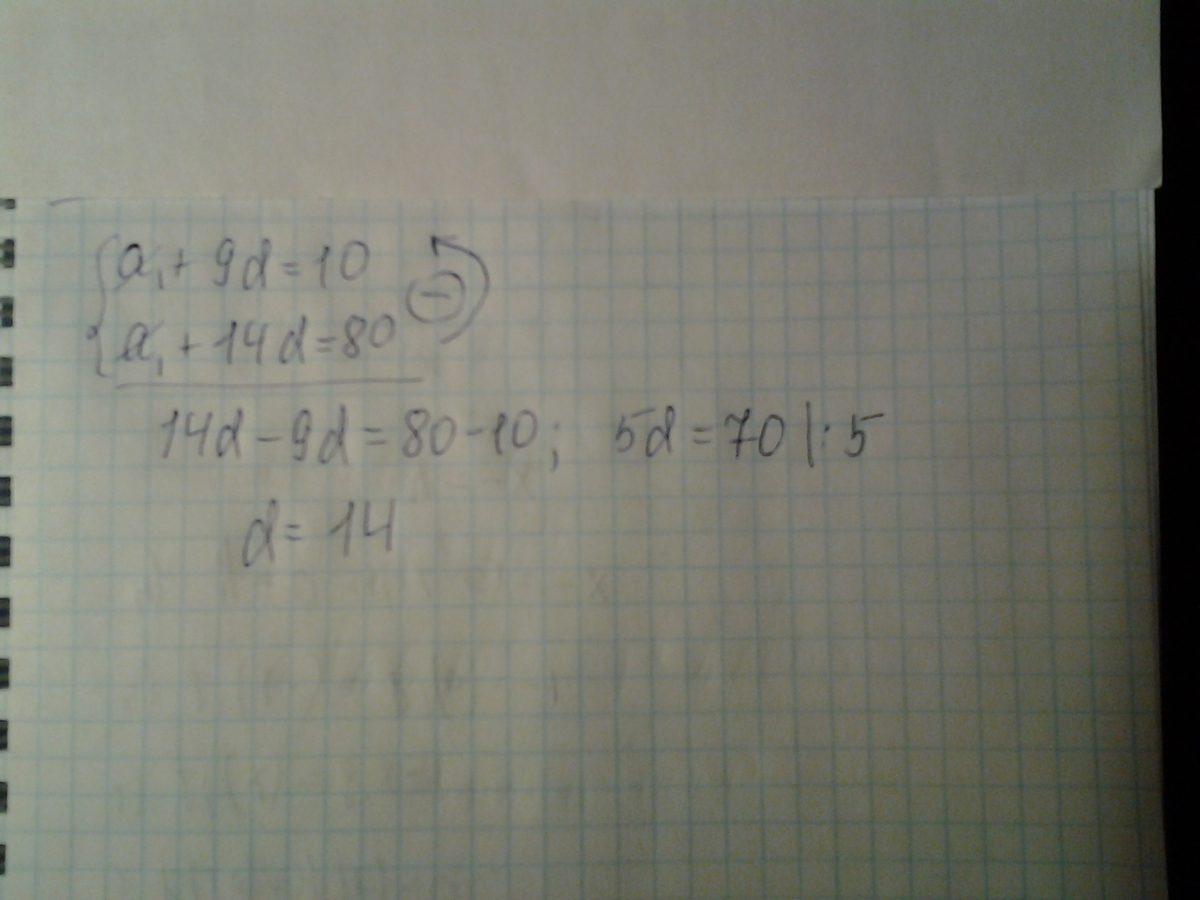 a₁ + 9d = 10
a₁ + 14d = 80
14d - 9d = 80 - 10; 5d = 70 |: 5
d = 14